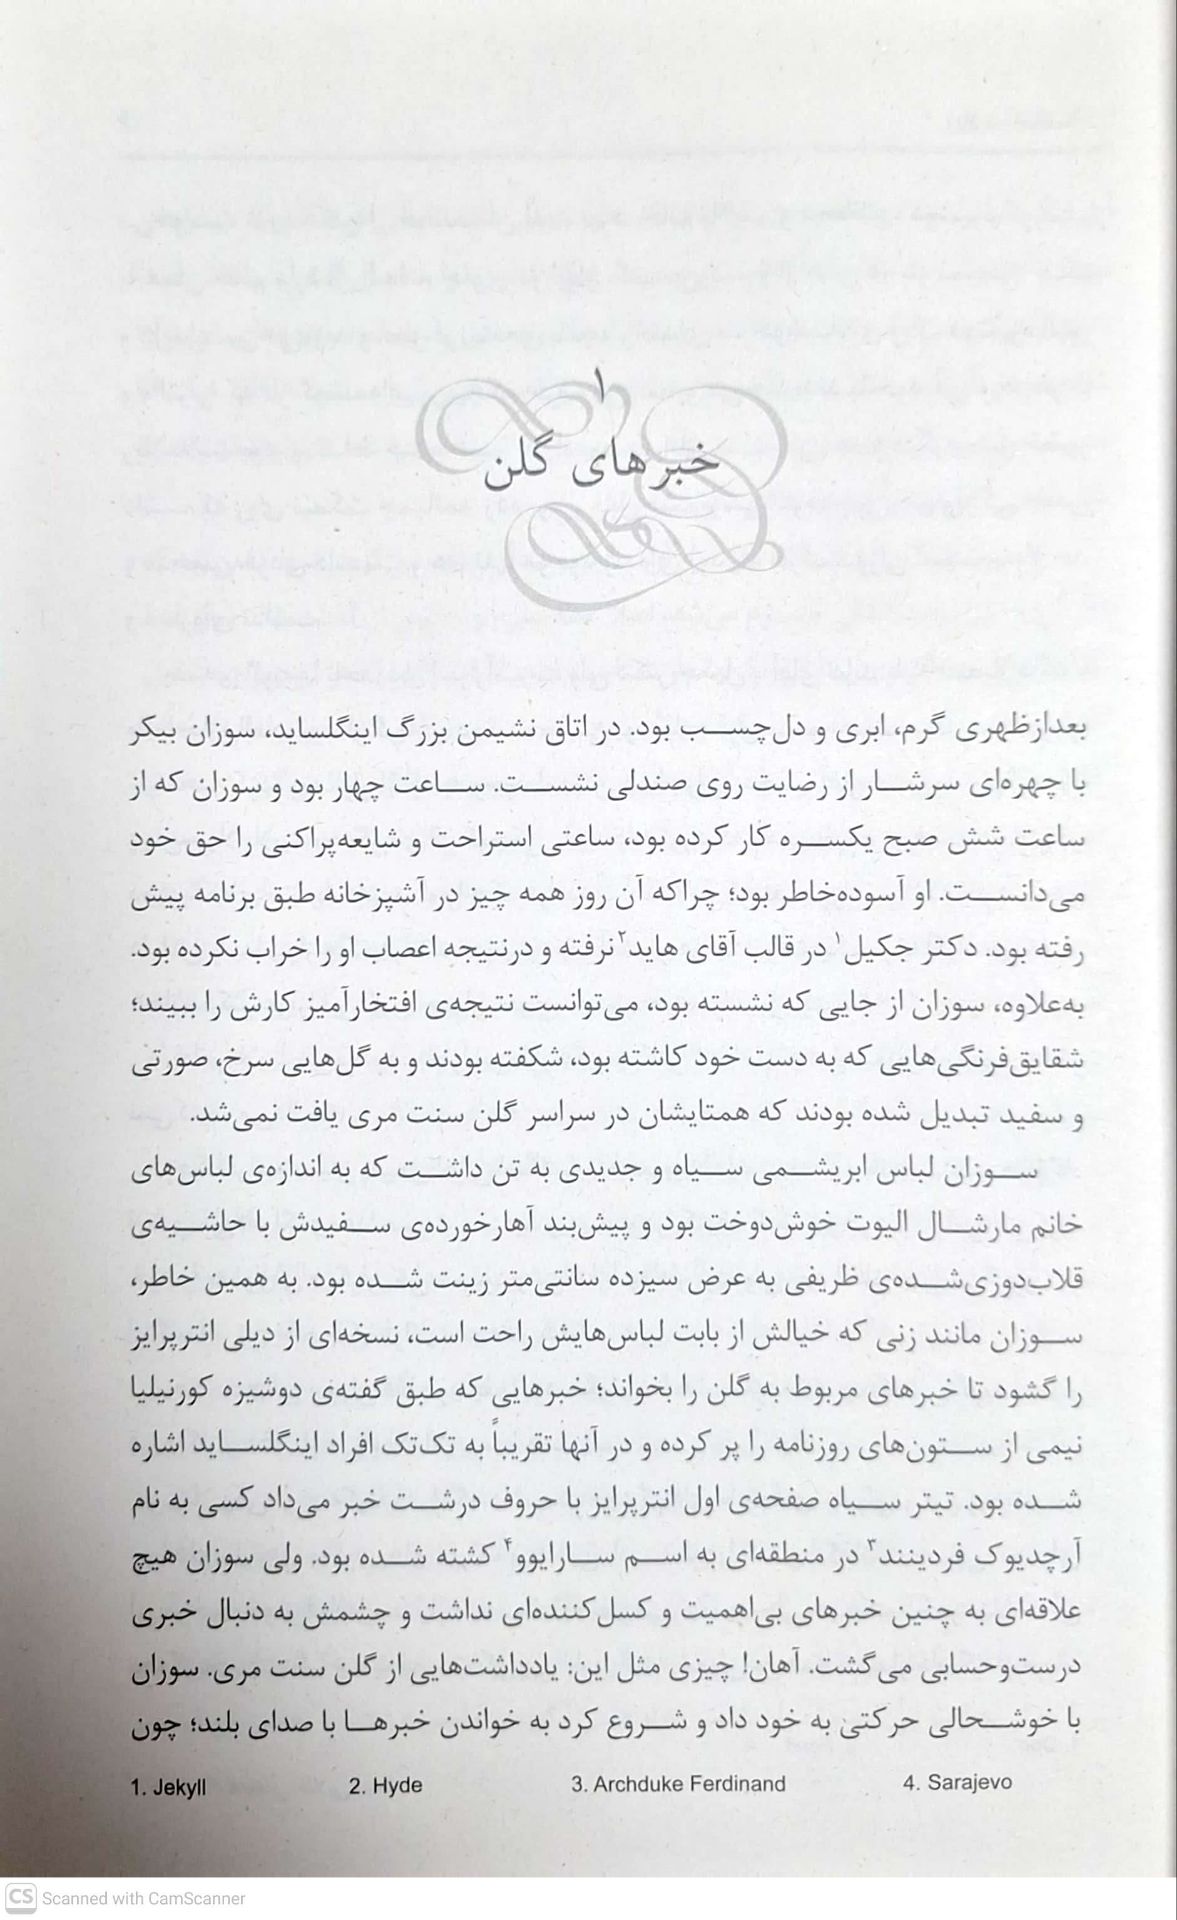 ۱
خبرهای گلن
بعدازظهری گرم، ابری و دل‌چسب بود. در اتاق نشیمن بزرگ اینگلساید، سوزان بیکر
با چهره‌ای سرشار از رضایت روی صندلی نشست. ساعت چهار بود و سوزان که از
ساعت شش صبح یکسره کار کرده بود، ساعتی استراحت و شایعه‌پراکنی را حق خود
می‌دانست. او آسوده‌خاطر بود؛ چراکه آن روز همه چیز در آشپزخانه طبق برنامه پیش
رفته بود. دکتر جکیل۱ در قالب آقای هاید۲ نرفته و درنتیجه اعصاب او را خراب نکرده بود.
به‌علاوه، سوزان از جایی که نشسته بود، می‌توانست نتیجه‌ی افتخارآمیز کارش را ببیند؛
شقایق‌فرنگی‌هایی که به دست خود کاشته بود، شکفته بودند و به گل‌هایی سرخ، صورتی
و سفید تبدیل شده بودند که همتایشان در سراسر گلن سنت مری یافت نمی‌شد.
سوزان لباس ابریشمی سیاه و جدیدی به تن داشت که به اندازه‌ی لباس‌های
خانم مارشال الیوت خوش‌دوخت بود و پیش‌بند آهارخورده‌ی سفیدش با حاشیه‌ی
قلاب‌دوزی‌شده‌ی ظریفی به عرض سیزده سانتی‌متر زینت شده بود. به همین خاطر،
سوزان مانند زنی که خیالش از بابت لباس‌هایش راحت است، نسخه‌ای از دیلی انترپرایز
را گشود تا خبرهای مربوط به گلن را بخواند؛ خبرهایی که طبق گفته‌ی دوشیزه کورنیلیا
نیمی از ستون‌های روزنامه را پر کرده و در آنها تقریباً به تک‌تک افراد اینگلساید اشاره
شده بود. تیتر سیاه صفحه‌ی اول انترپرایز با حروف درشت خبر می‌داد کسی به نام
آرچدیوک فردینند۳ در منطقه‌ای به اسم سارایوو۴ کشته شده بود. ولی سوزان هیچ
علاقه‌ای به چنین خبرهای بی‌اهمیت و کسل‌کننده‌ای نداشت و چشمش به دنبال خبری
درست‌وحسابی می‌گشت. آهان! چیزی مثل این: یادداشت‌هایی از گلن سنت مری. سوزان
با خوشحالی حرکتی به خود داد و شروع کرد به خواندن خبرها با صدای بلند؛ چون
1. Jekyll 2. Hyde 3. Archduke Ferdinand 4. Sarajevo
CS Scanned with CamScanner